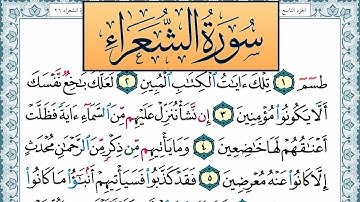 الجزء التاسع
سورة الشعراء ٢٦
سُورَةُ الشُّعَرَاءِ
طسٓمٓ ۝١ تِلۡكَ ءَايَٰتُ ٱلۡكِتَٰبِ ٱلۡمُبِينِ ۝٢ لَعَلَّكَ بَٰخِعٞ نَّفۡسَكَ
أَلَّا يَكُونُواْ مُؤۡمِنِينَ ۝٣ إِن نَّشَأۡ نُنَزِّلۡ عَلَيۡهِم مِّنَ ٱلسَّمَآءِ ءَايَةٗ فَظَلَّتۡ
أَعۡنَٰقُهُمۡ لَهَا خَٰضِعِينَ ۝٤ وَمَا يَأۡتِيهِم مِّن ذِكۡرٖ مِّنَ ٱلرَّحۡمَٰنِ مُحۡدَثٍ
إِلَّا كَانُواْ عَنۡهُ مُعۡرِضِينَ ۝٥ فَقَدۡ كَذَّبُواْ فَسَيَأۡتِيهِمۡ أَنۢبَٰٓؤُاْ مَا كَانُواْ